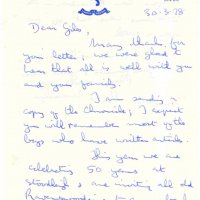 30-3-78
Dear Giles,
Many thanks for
your letter; we were glad to
hear that all is well with you
and your family.
I am sending a
copy of the Chronicle; I expect
you will remember most of the
boys who have written articles.
This year we are
celebrating 50 years at
Stoodleigh & are inviting all old
Ravenswoodians